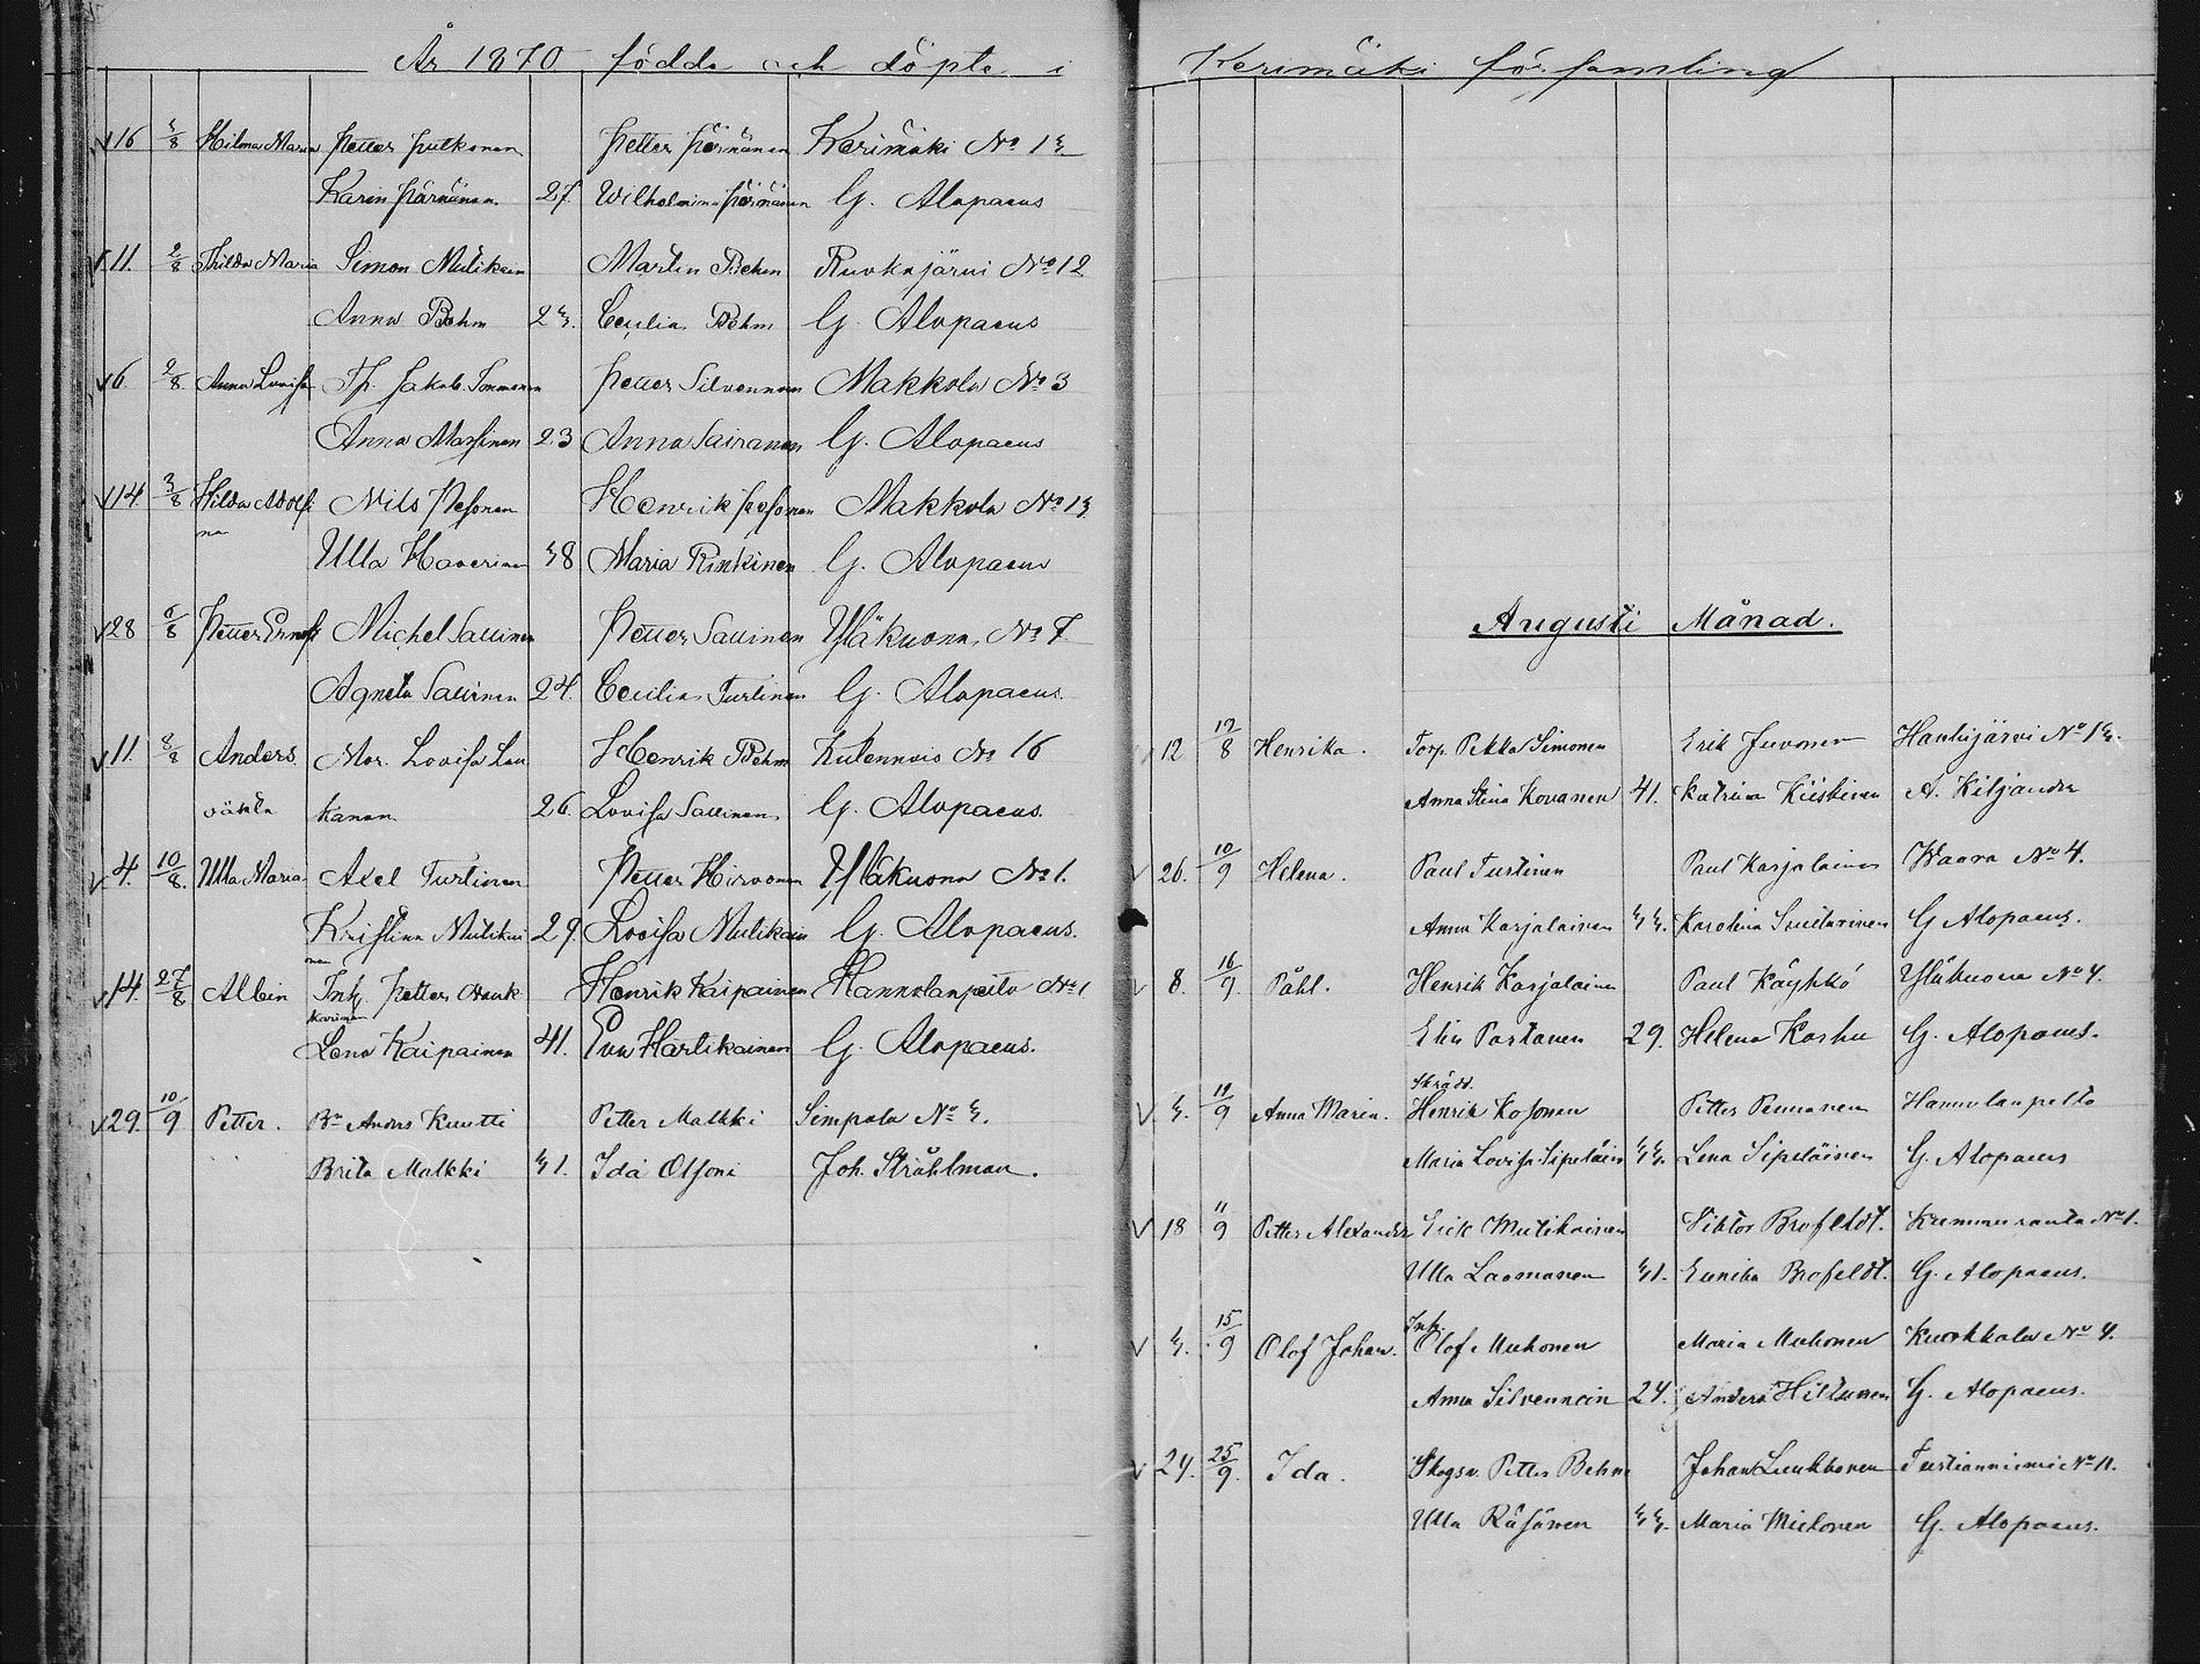 År 1870 födda och döpta i
16 5/8 Hilma Maria Petter Pulkonen Petter Pärnänen Kerimäki No 15
Karin Pärnänen 27. Wilhelmina Pärnänen G. Alopaeus
11. 2/8 Thilda Maria Simon Mutikain Martin Behm Ruokojärvi No 12
Anna Behm 25. Cecilia Behm G. Alopaeus
6. 2/8. Anna Lovisa Tp. Jakob Immonen Petter Silvennoin Makkola No 3
Anna Massinen 23 Anna Sairanen G. Alopaeus
14. 3/8 Hilda Adolfi Nils Pesonen Henrik Pesonen Makkola No 13
na
Ulla Haverinen 38 Maria Rinkinen G. Alopaeus
28 6/8 Petter Ernst Michel Sallinen Petter Sallinen Yläkuona No 7
Agneta Sallinen 24. Cecilia Turtinen G. Alopaeus.
11. 8/8 Anders Mor. Lovisa Lau Henrik Behm Kulennois No 16
oäkta kanen 26. Lovisa Sallinen G. Alopaeus.
4. 10/8. Ulla Maria Axel Turtinen Petter Hirvonen Yläkuona No 1.
Kristina Mutikai 29. Lovisa Mutikain G. Alopaeus.
nen
14. 27/8 Albin Inh. Petter Hauk Henrik Kaipainen Hannolanpelto No 1
karinen
Lena Kaipainen 41. Eva Härtikainen G. Alopaeus.
29. 10/9 Petter. Bn Anders Kuutti Petter Malkki Simpala No 5.
Brita Malkki 51. Ida Olsoni Joh. Stråhlman.
Kerimäki församling
Augusti Månad.
12 12/8 Henrika. Torp. Pekka Simonen Erik Juvonen Hanhijärvi No 15.
Anna Stina Kovanen 41. Katrina Kiiskinen A. Kiljander
26. 10/9 Helena. Paul Turtinen Paul Karjalainen Waara No 4.
Anna Karjalainen 55. Karolina Suutarinen G Alopaeus.
8. 16/9. Påhl. Henrik Karjalainen Paul Käyhkö Yläkuona No 4.
Elin Partanen 29. Helena Karhu G. Alopaeus.
Skrädd.
5. 19/9 Anna Maria. Henrik Kosonen Petter Pennanen Hannolanpelto
Maria Lovisa Sipeläin 55. Lena Sipeläinen G. Alopaeus
18 11/9 Petter Alexander Erick Mutikainen Viktor Brofeldt. Kummunranta No 1.
Ulla Laamanen 51. Eunika Brofeldt. G. Alopaeus.
Inh.
5. 15/9 Olof Johan. Olof Muhonen Maria Muhonen Kuokkala No 4.
Anna Silvennoin 24. Anders Hiltunen G. Alopaeus.
24. 25/9. Ida. Skogsv. Petter Behm Johan Luukkonen Turtianniemi No 11.
Ulla Räsänen 55. Maria Mielonen G. Alopaeus.